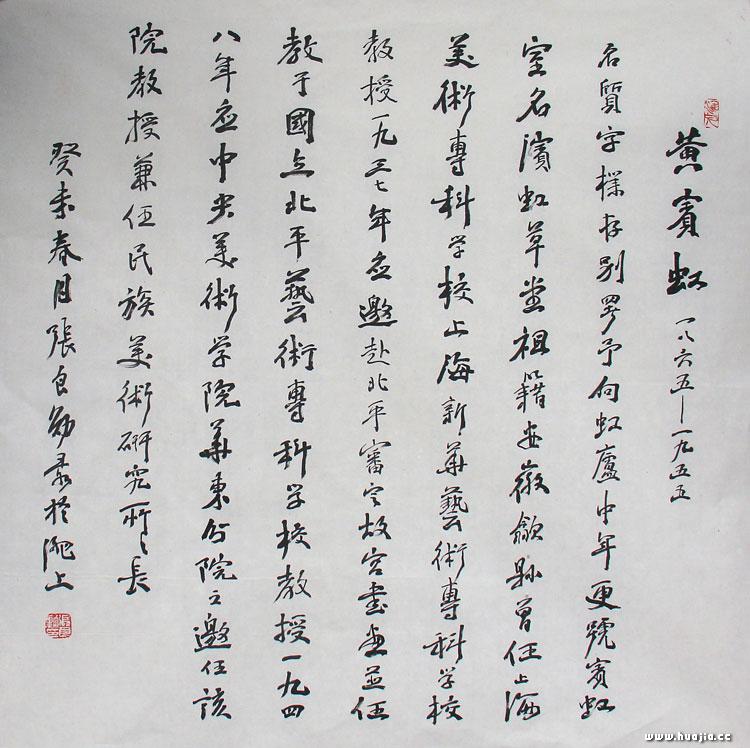 黄賓虹 一八六五—一九五五
名質字樸存别署予向虹廬中年更號賓虹
室名濱虹草堂祖籍安徽歙縣曾任上海
美術專科学校上海新華藝術專科学校
教授一九三七年应邀赴北平審定故宫書畫並任
教于國立北平藝術專科学校教授一九四
八年应中央美術学院華東分院之邀任該
院教授兼任民族美術研究所々長
癸未春月張良勋录於淝上
www.huajia.cc